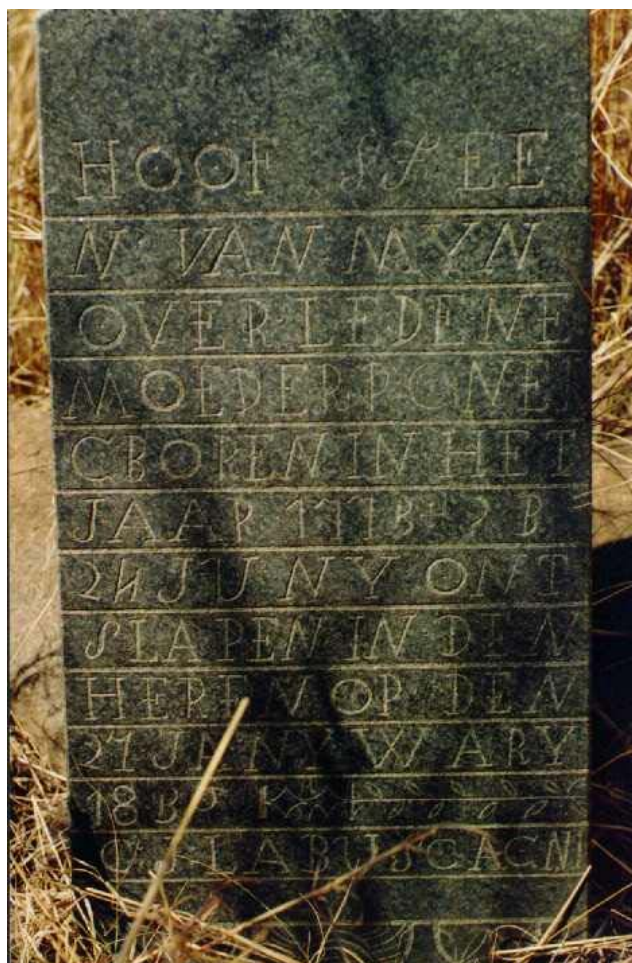 HOOF STEE
N VAN MYN
OVERLEDENE
MOEDER P C NEL
GBOREN IN HET
JAAR
24 JUNY ONT
SLAPEN IN DEN
HEREN OP DEN
27 JANYWARY
C J LABUSCACN